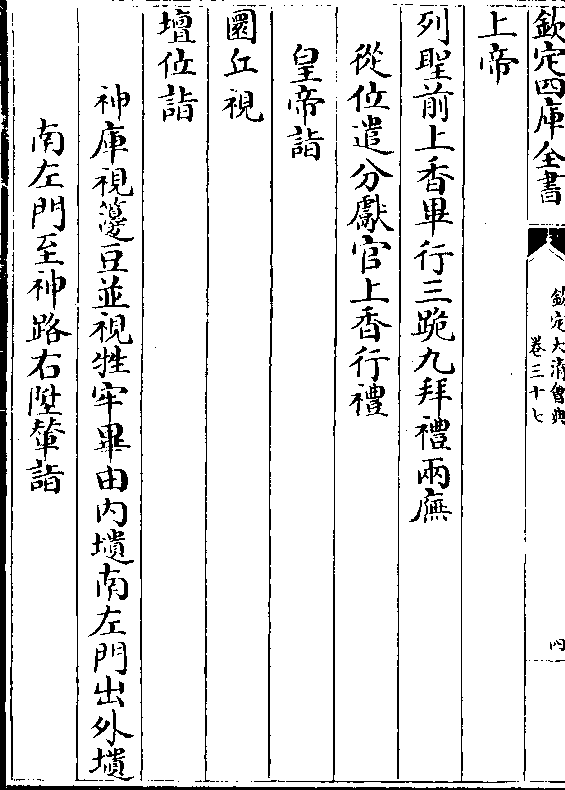 欽定四庫全書
欽定大清會典
卷三十七
四
上帝
列聖前上香畢行三跪九拜禮兩廡
從位遣分獻官上香行禮
皇帝詣
圜丘視
壇位詣
神庫視籩豆並視牲牢畢由内壝南左門出外壝
南左門至神路右陞輦詣